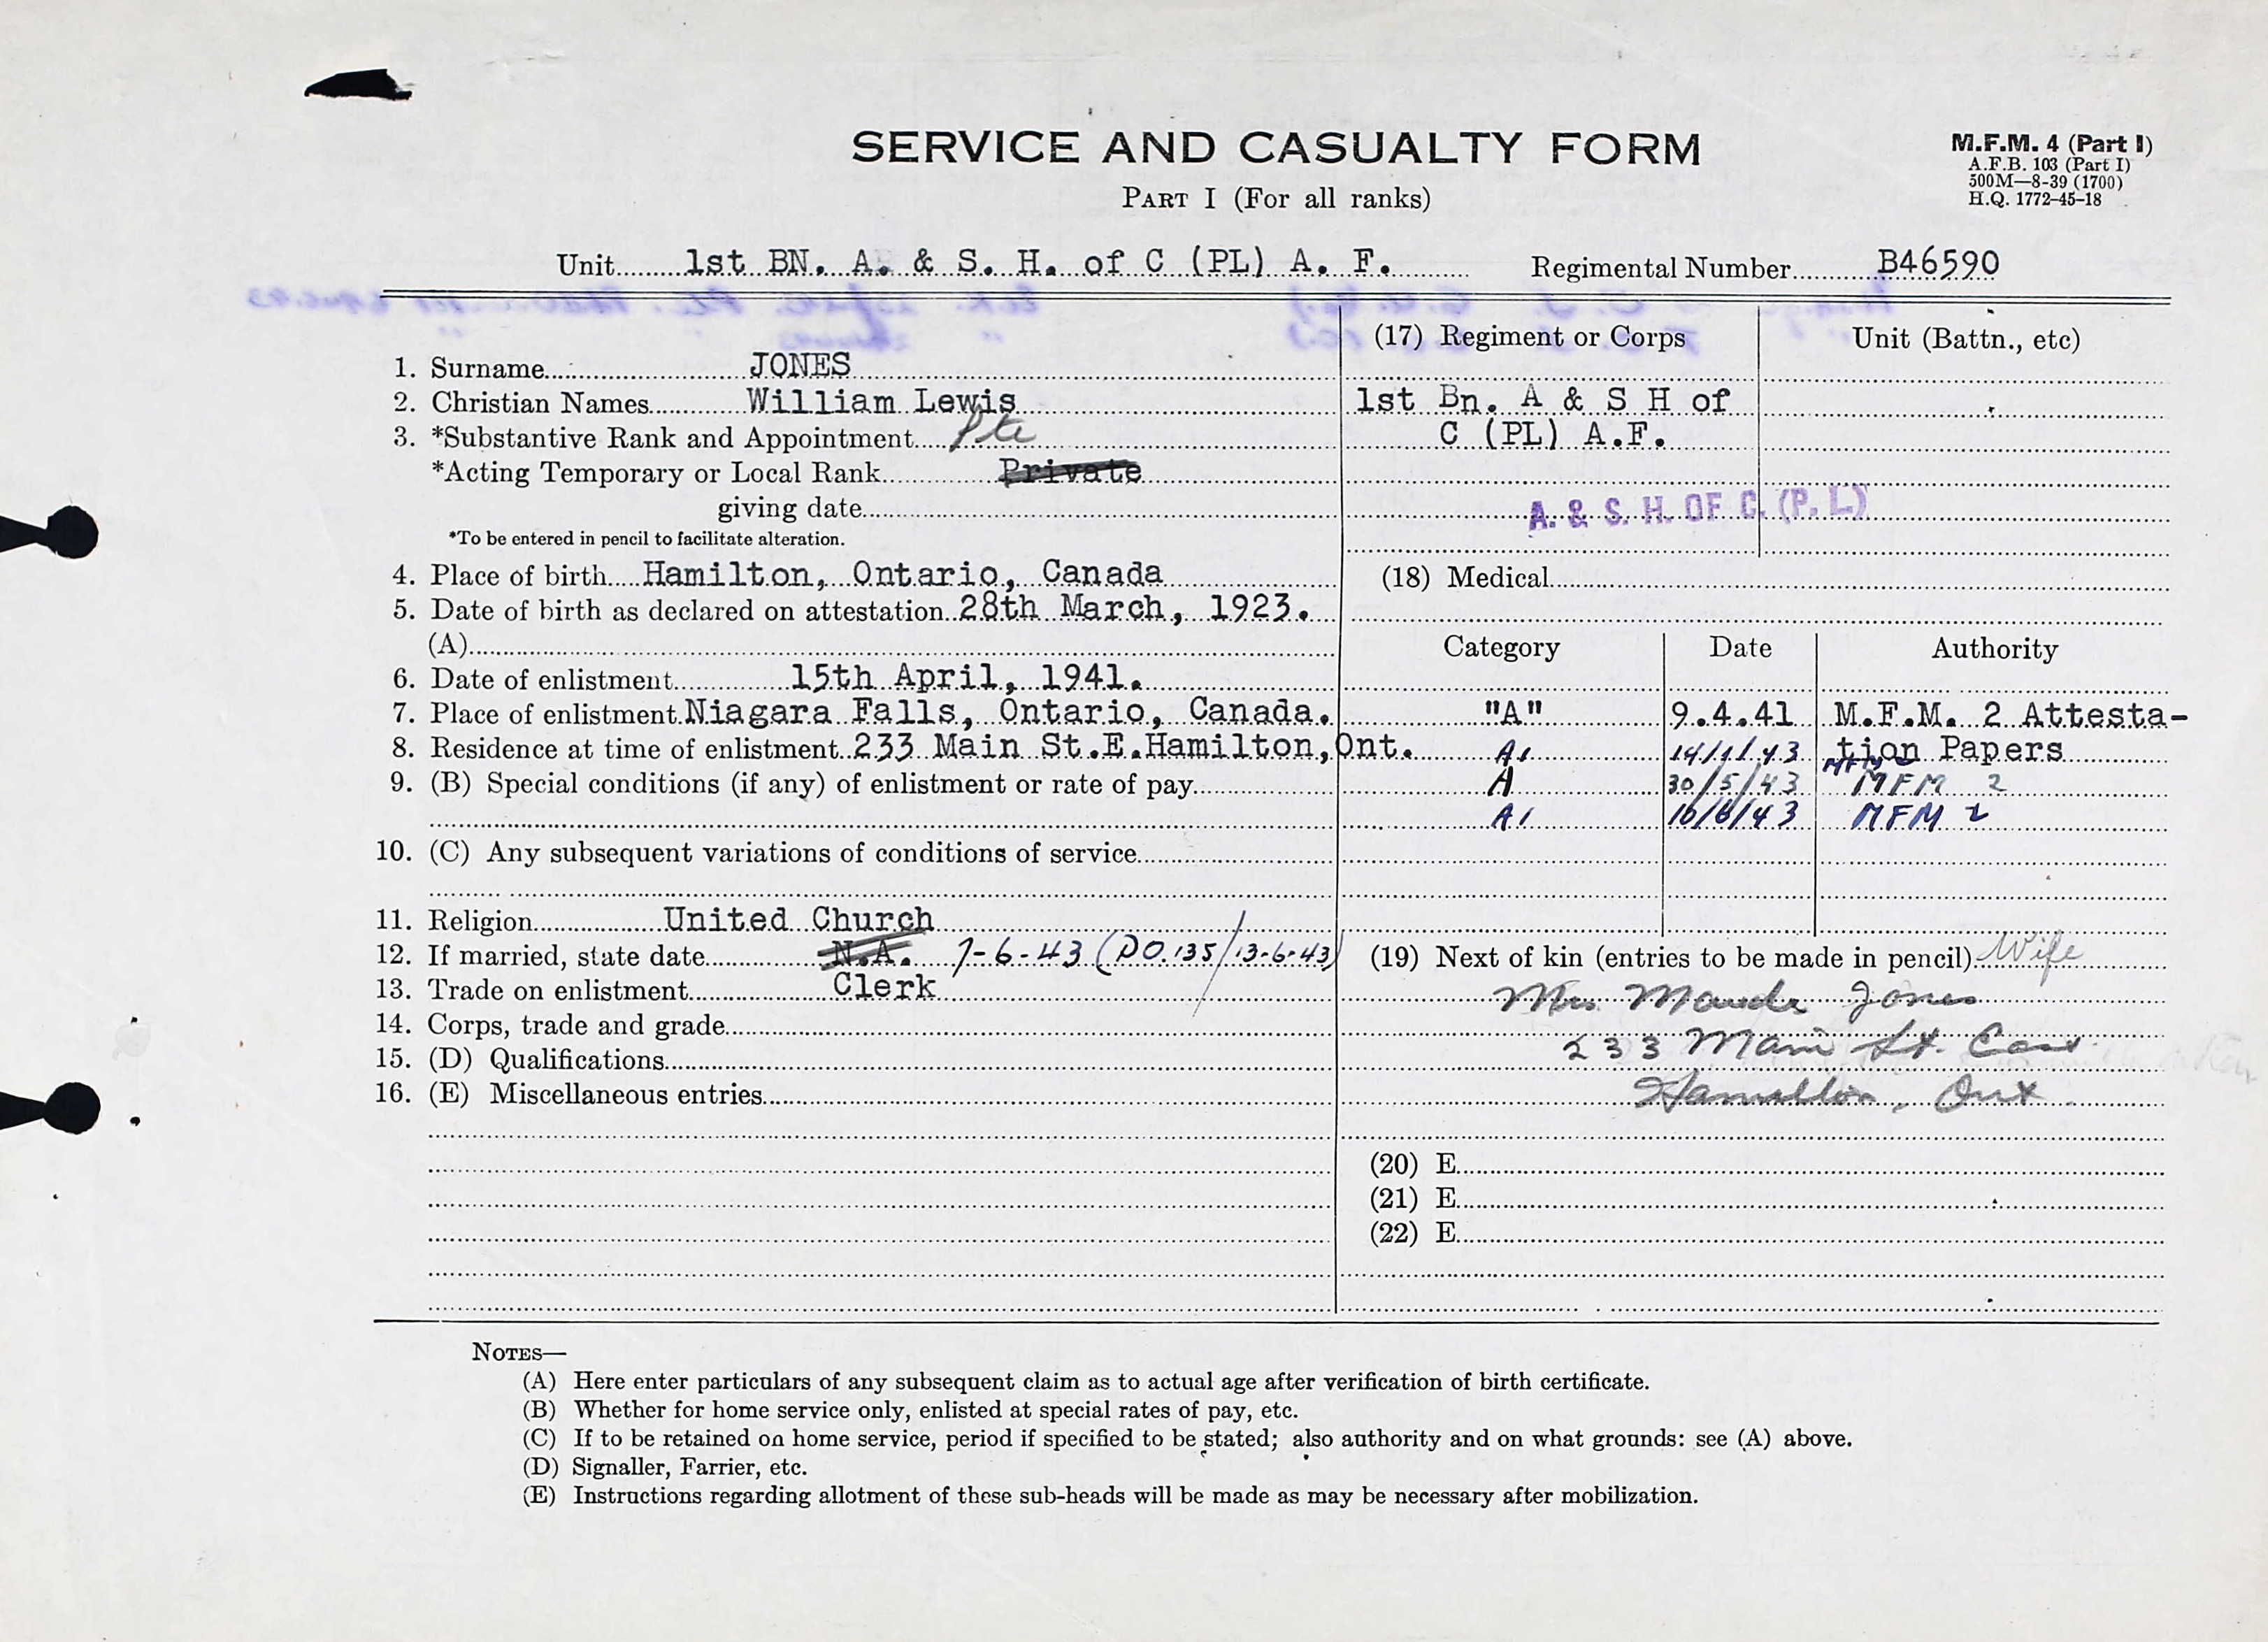 SERVICE AND CASUALTY FORM
M.F.M. 4 (Part I)
A.F.B. 103 (Part I)
500M—8-39 (1700)
H.Q. 1772-45-18
PART I (For all ranks)
Unit 1st BN. A. & S. H. of C (PL) A. F. Regimental Number B46590
(17) Regiment or Corps Unit (Battn., etc)
1. Surname JONES
2. Christian Names William Lewis
1st Bn. A & S H of
C (PL) A.F.
3. *Substantive Rank and Appointment Pte
*Acting Temporary or Local Rank Private
giving date
A. & S. H. OF C. (P. L.)
*To be entered in pencil to facilitate alteration.
4. Place of birth Hamilton, Ontario, Canada
5. Date of birth as declared on attestation 28th March, 1923.
(A)
6. Date of enlistment 15th April, 1941.
7. Place of enlistment Niagara Falls, Ontario, Canada.
8. Residence at time of enlistment 233 Main St.E.Hamilton,Ont.
9. (B) Special conditions (if any) of enlistment or rate of pay
10. (C) Any subsequent variations of conditions of service
11. Religion United Church
12. If married, state date N.A. 7-6-43 (DO.135/13-6-43)
13. Trade on enlistment Clerk
14. Corps, trade and grade
15. (D) Qualifications
16. (E) Miscellaneous entries
(18) Medical
Category Date Authority
"A" 9.4.41 M.F.M. 2 Attesta-
tion Papers
A1 14/1/43 MFM 2
A 30/5/43 MFM 2
A1 10/6/43 MFM 2
(19) Next of kin (entries to be made in pencil) Wife
Mrs. Maude Jones
233 Main St. East
Hamilton, Ont
(20) E
(21) E
(22) E
NOTES—
(A) Here enter particulars of any subsequent claim as to actual age after verification of birth certificate.
(B) Whether for home service only, enlisted at special rates of pay, etc.
(C) If to be retained on home service, period if specified to be stated; also authority and on what grounds: see (A) above.
(D) Signaller, Farrier, etc.
(E) Instructions regarding allotment of these sub-heads will be made as may be necessary after mobilization.